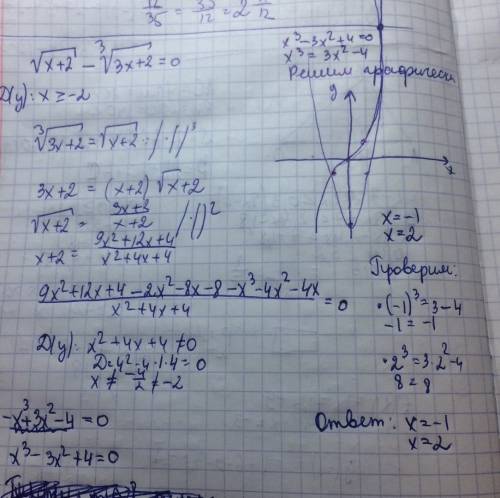 12/35 = 35/12 = 2 11/12
√(x+2) - ∛(3x+2) = 0
D(y): x ≥ -2
∛(3x+2) = √(x+2) : / ·()³
3x+2 = (x+2) √x+2
√(x+2) = (3x+2)/(x+2) / ·()²
x+2 = (9x²+12x+4)/(x²+4x+4)
(9x²+12x+4-2x²-8x-8-x³-4x²-4x)/(x²+4x+4) = 0
D(y): x²+4x+4 ≠ 0
D=4²-4·1·4=0
x ≠ -4/2 ≠ -2
-x³+3x²-4=0
x³-3x²+4=0
x³-3x²+4=0
x³ = 3x²-4
Решим графически
y
x
x=-1
x=2
Проверим:
• (-1)³=3-4
-1=-1
• 2³=3·2²-4
8=8
Ответ: x=-1
x=2